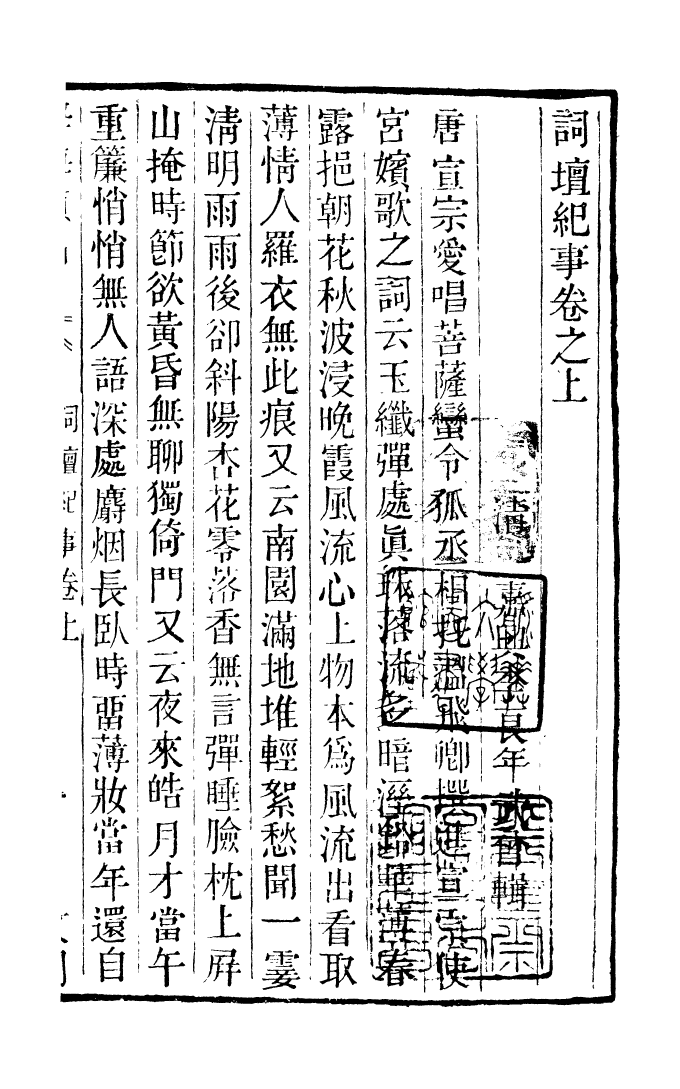 詞壇紀事卷之上
良年武曾輯
唐宣宗愛唱菩薩蠻令狐丞相托溫飛卿撰進宣宗使
宮嬪歌之詞云玉纖彈處眞珠落流多暗濕鉛華薄春
露挹朝花秋波浸晚霞風流心上物本爲風流出看取
薄情人羅衣無此痕又云南園滿地堆輕絮愁聞一霎
淸明雨雨後卻斜陽杏花零落香無言彈睡臉枕上屛
山掩時節欲黃昏無聊獨倚門又云夜來皓月才當午
重簾悄悄無人語深處麝烟長臥時畱薄妝當年還自
詞壇紀事卷上